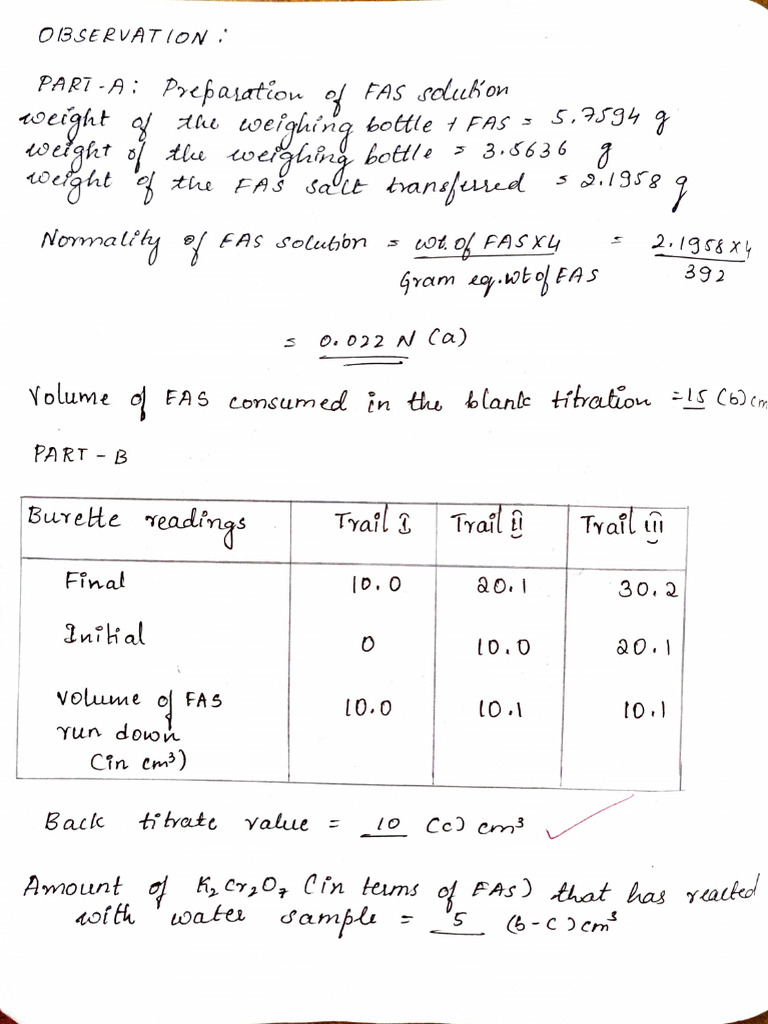 OBSERVATION:
PART-A: Preparation of FAS solution
weight of the weighing bottle + FAS = 5.7594 g
weight of the weighing bottle = 3.5636 g
weight of the FAS salt transferred = 2.1958 g
Normality of FAS solution = wt. of FAS X4 = 2.1958 X4
Gram eq. wt of FAS 392
= 0.022 N (a)
Volume of FAS consumed in the blank titration = 15 (b) cm
PART - B
Burette readings Trail I Trail II Trail III
Final 10.0 20.1 30.2
Initial 0 10.0 20.1
Volume of FAS 10.0 10.1 10.1
run down
(in cm³)
Back titrate value = 10 (c) cm³
Amount of K₂Cr₂O₇ (in terms of FAS) that has reacted
with water sample = 5 (b-c) cm³